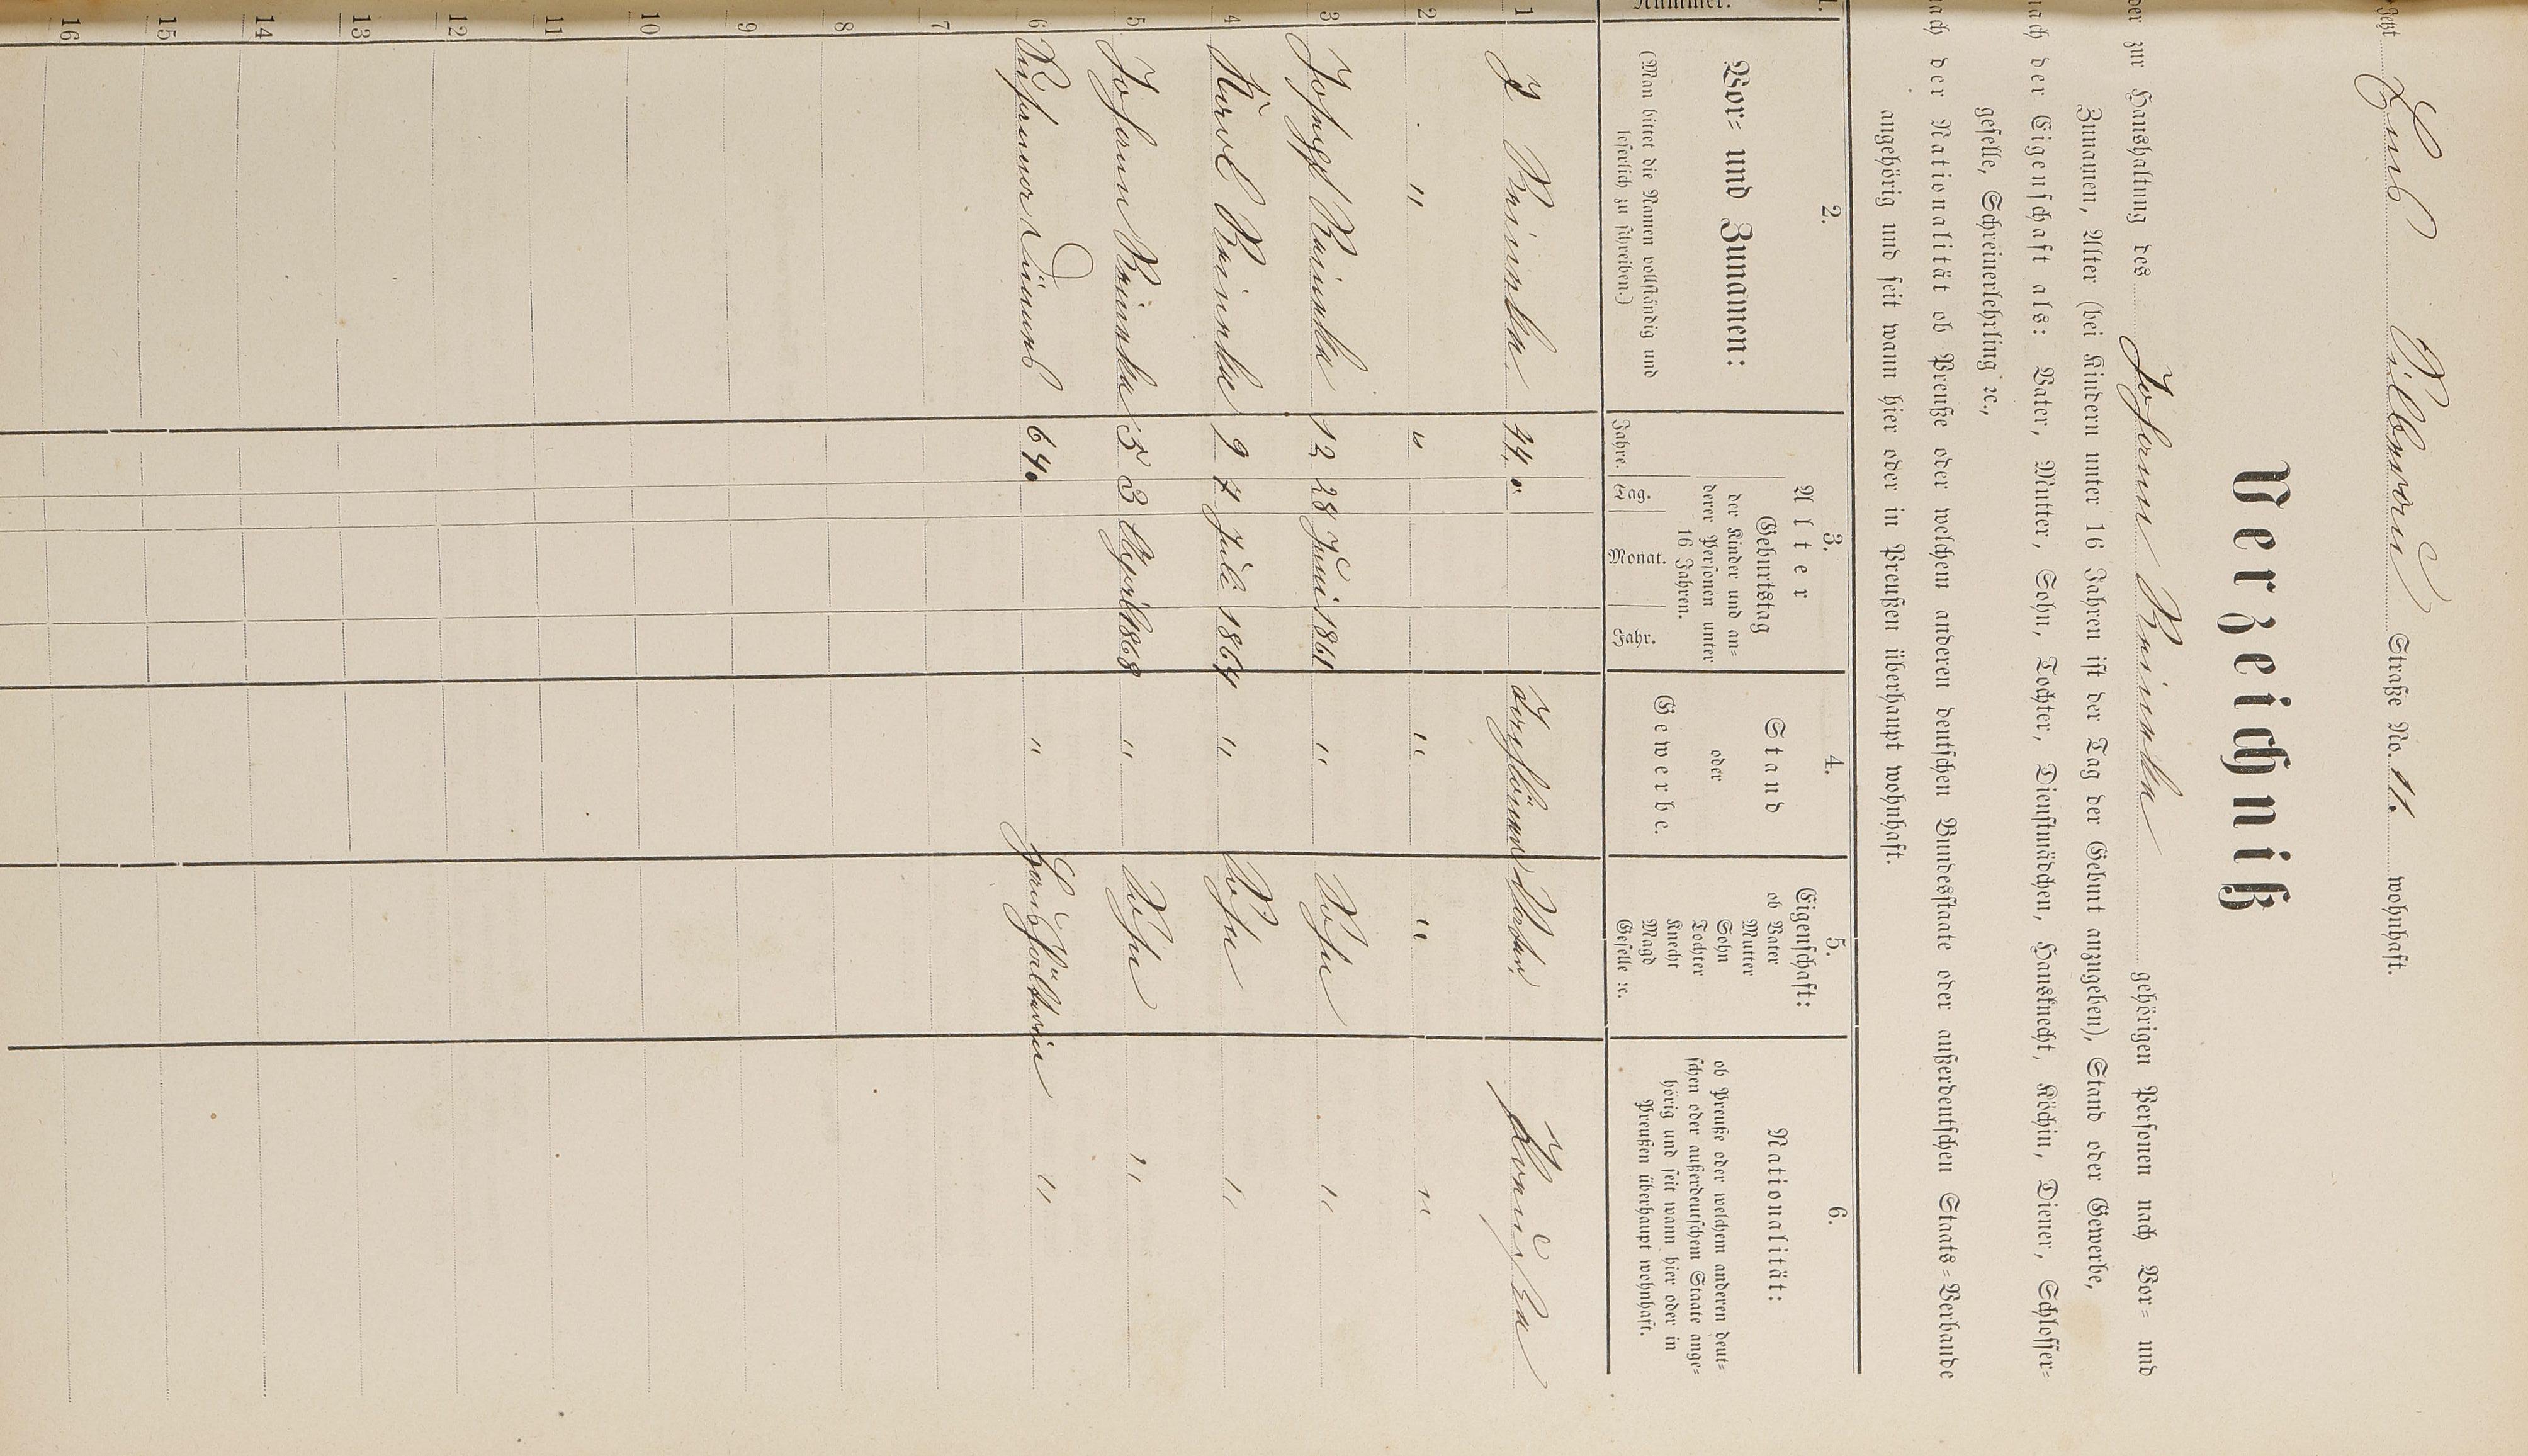 Jetzt Silberad Straße No. 11. wohnhaft.
Verzeichniß
der zur Haushaltung des Johann Reinska gehörigen Personen nach Vor= und
Zunamen, Alter (bei Kindern unter 16 Jahren ist der Tag der Geburt anzugeben), Stand oder Gewerbe,
nach der Eigenschaft als: Vater, Mutter, Sohn, Tochter, Dienstmädchen, Hausknecht, Köchin, Diener, Schlosser=
geselle, Schreinerlehrling ꝛc.,
nach der Nationalität ob Preuße oder welchem anderen deutschen Bundesstaate oder außerdeutschen Staats=Verbande
angehörig und seit wann hier oder in Preußen überhaupt wohnhaft.
1. 2. 3. 4. 5. 6.
Nummer.
Vor= und Zunamen:
(Man bittet die Namen vollständig und
leserlich zu schreiben.)
Alter
Geburtstag
der Kinder und an=
derer Personen unter
16 Jahren.
Jahre. Tag. Monat. Jahr.
Stand
oder
Gewerbe.
Eigenschaft:
ob Vater
Mutter
Sohn
Tochter
Knecht
Magd
Geselle ꝛc.
Nationalität:
ob Preuße oder welchem anderen deut=
schen oder außerdeutschem Staate ange=
hörig und seit wann hier oder in
Preußen überhaupt wohnhaft.
1 J Reinska. 44. Vater
2 " " " " "
3 Joseph Reinska 12 28 Juni 1861 " Sohn "
4 Karl Reinska 9 7 Juli 1864 " Sohn "
5 Johann Reinska 5 3 April 1868 " Sohn "
6 64. " Haushälterin "
7
8
9
10
11
12
13
14
15
16